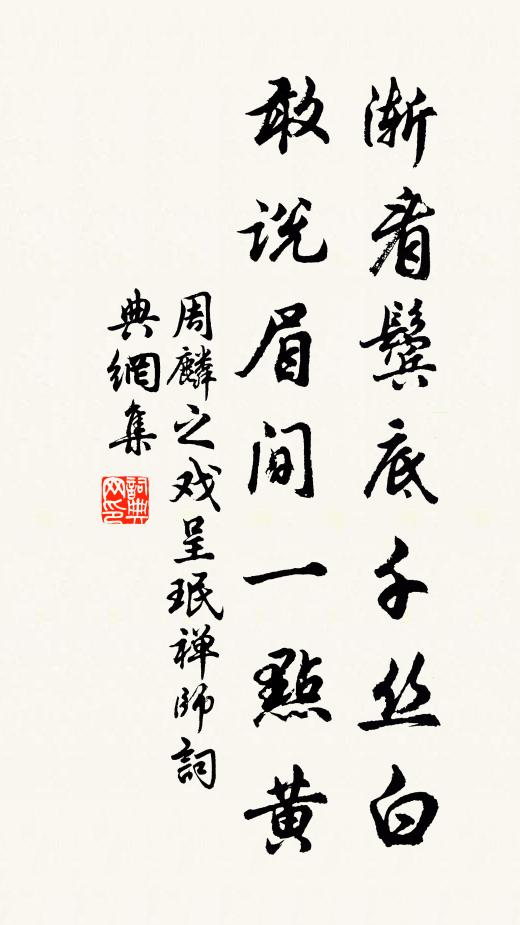 渐看鬓底千丝白
敢说眉间一點黄
周麟之戏呈珉禅师詞
典網集
詞典网印